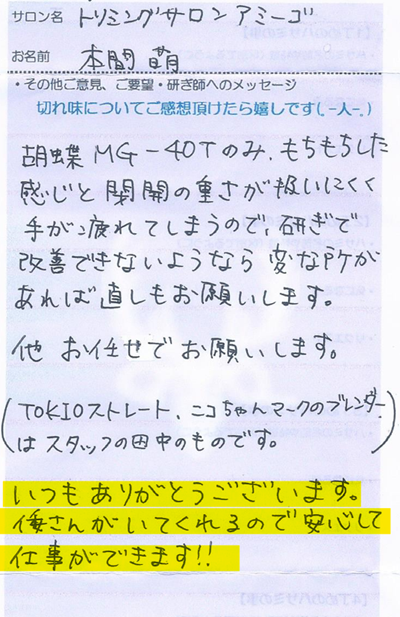 サロン名 トリミングサロンアミーゴ
お名前 本間 萌
・その他ご意見、ご要望・研ぎ師へのメッセージ
切れ味についてご感想頂けたら嬉しです(.-人-.)
胡蝶 MG-40Tのみ、もちもちした
感じと閉開の重さが扱いにくく
手が疲れてしまうので、研ぎで
改善できないようなら変な所が
あれば直しもお願いします。
他 お任せでお願いします。
(TOKIOストレート、ニコちゃんマークのブレンダー
はスタッフの田中のものです。)
いつもありがとうございます。
倭さんがいてくれるので安心して
仕事ができます!!